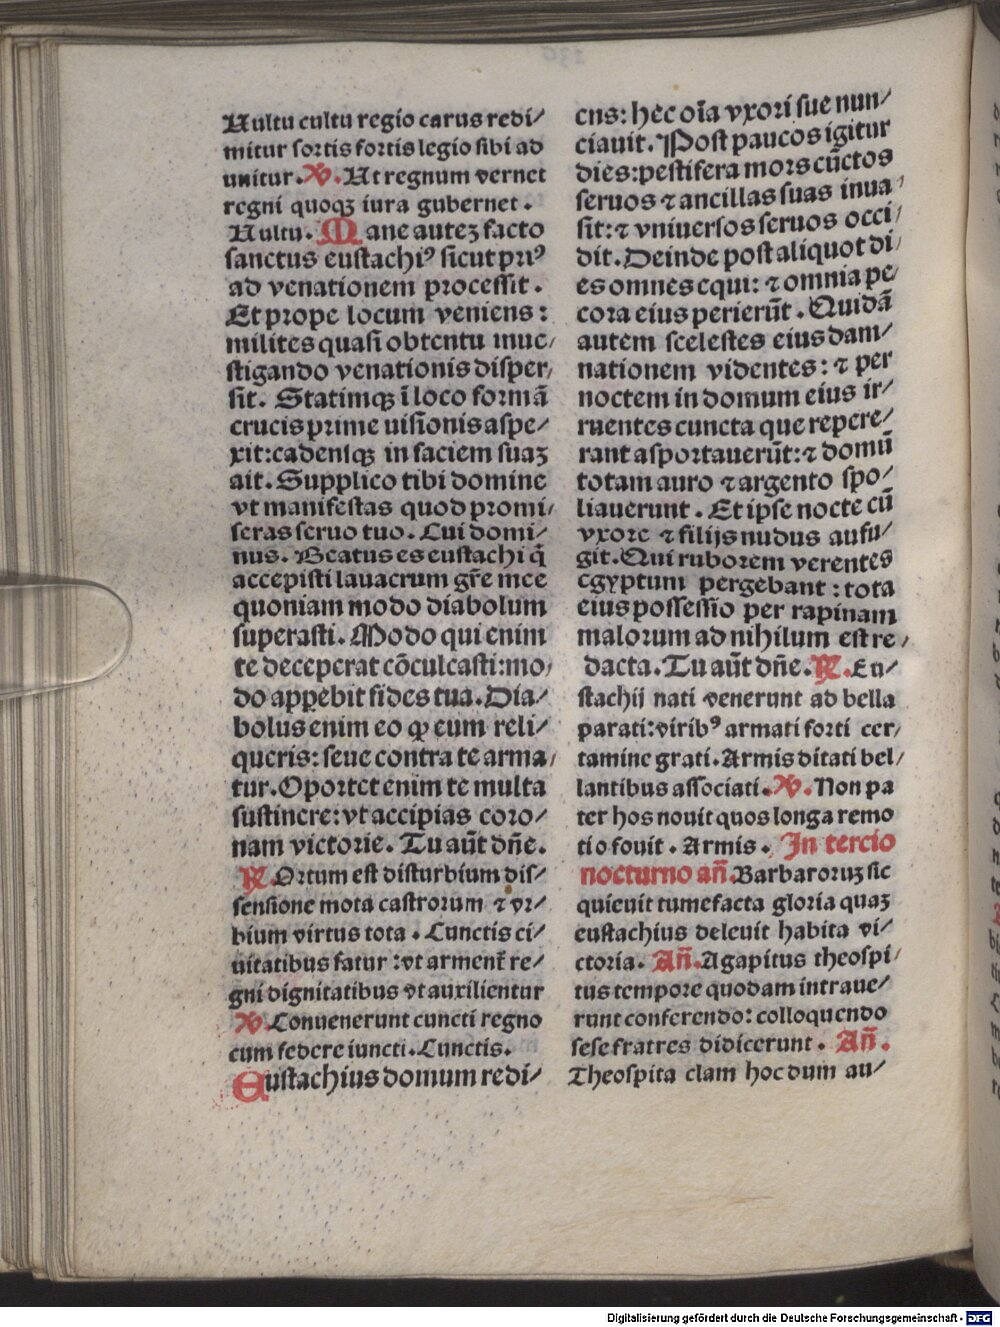 Uultu cultu regio carus redi/
mitur sortis fortis legio sibi ad
unitur. V. Ut regnum vernet
regni quoqꝫ iura gubernet.
Uultu. Mane auteꝫ facto
sanctus eustachiꝰ sicut priꝰ
ad venationem processit.
Et prope locum veniens:
milites quasi obtentu inue/
stigando venationis disper/
sit. Statimqꝫ ī loco formā
crucis prime uisionis aspe/
xit: cadensqꝫ in faciem suaꝫ
ait. Supplico tibi domine
vt manifestas quod promi/
seras seruo tuo. Cui domi/
nus. Beatus es eustachi q̄
accepisti lauacrum gr̄e mee
quoniam modo diabolum
superasti. Modo qui enim
te deceperat cōculcasti: mo/
do apꝑebit fides tua. Dia/
bolus enim eo ꝙ eum reli/
queris: seue contra te arma/
tur. Oportet enim te multa
sustinere: vt accipias coro/
nam victorie. Tu aūt dn̄e.
R. Ortum est disturbium dis/
sensione mota castrorum ⁊ vr/
bium virtus tota. Cunctis ci/
uitatibus fatur: vt arment̄ re/
gni dignitatibus vt auxilientur
V. Conuenerunt cuncti regno
cum federe iuncti. Cunctis.
Eustachius domum redi/
ens: hec oīa vxori sue nun/
ciauit. Post paucos igitur
dies: pestifera mors cūctos
seruos ⁊ ancillas suas inua/
sit: ⁊ vniuersos seruos occi/
dit. Deinde post aliquot di/
es omnes equi: ⁊ omnia pe/
cora eius perierūt. Quidā
autem scelestes eius dam/
nationem videntes: ⁊ per
noctem in domum eius ir/
ruentes cuncta que repere/
rant asportauerūt: ⁊ domū
totam auro ⁊ argento spo/
liauerunt. Et ipse nocte cū
vxore ⁊ filijs nudus aufu/
git. Qui ruborem verentes
egyptum pergebant: tota
eius possessio per rapinam
malorum ad nihilum est re/
dacta. Tu aūt dn̄e. R. Eu/
stachij nati venerunt ad bella
parati: viribꝰ armati forti cer/
tamine grati. Armis ditati bel/
lantibus associati. V. Non pa
ter hos nouit quos longa remo
tio fouit. Armis. In tercio
nocturno an̄. Barbaroruꝫ sic
quieuit tumefacta gloria quaꝫ
eustachius deleuit habita vi/
ctoria. An̄. Agapitus theospi/
tus tempore quodam intraue/
runt conferendo: colloquendo
sese fratres didicerunt. An̄.
Theospita clam hoc dum au/
Digitalisierung gefördert durch die Deutsche Forschungsgemeinschaft - DFG